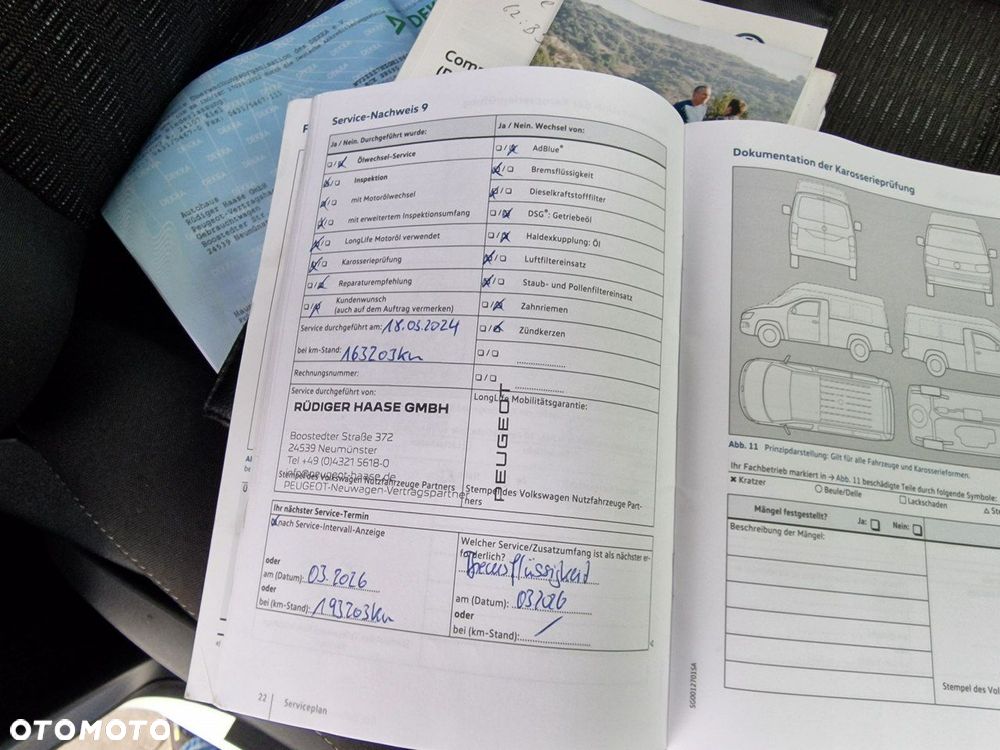 Service-Nachweis 9
Ja / Nein. Durchgeführt wurde:
Ölwechsel-Service
Inspektion
mit Motorölwechsel
mit erweitertem Inspektionsumfang
LongLife Motoröl verwendet
Karosserieprüfung
Reparaturempfehlung
Kundenwunsch
(auch auf dem Auftrag vermerken)
Service durchgeführt am: 18.03.2024
bei km-Stand: 163203km
Rechnungsnummer:
Service durchgeführt von:
RÜDIGER HAASE GMBH
Boostedter Straße 372
24539 Neumünster
Tel +49 (0)4321 5618-0
info@peugeot-haase.de
Stempel des Volkswagen Nutzfahrzeuge Partners
PEUGEOT-Neuwagen-Vertragspartner
Ja / Nein. Wechsel von:
AdBlue®
Bremsflüssigkeit
Dieselkraftstofffilter
DSG®: Getriebeöl
Haldexkupplung: Öl
Luftfiltereinsatz
Staub- und Pollenfiltereinsatz
Zahnriemen
Zündkerzen
LongLife Mobilitätsgarantie:
PEUGEOT
Stempel des Volkswagen Nutzfahrzeuge Part-
ners
Ihr nächster Service-Termin
nach Service-Intervall-Anzeige
oder
am (Datum): 03.2026
oder
bei (km-Stand): 193203km
Welcher Service/Zusatzumfang ist als nächster er-
forderlich?
Bremsflüssigkeit
am (Datum): 03.2026
oder
bei (km-Stand):
22 Serviceplan
Dokumentation der Karosserieprüfung
Abb. 11 Prinzipdarstellung: Gilt für alle Fahrzeuge und Karosserieformen.
Ihr Fachbetrieb markiert in → Abb. 11 beschädigte Teile durch folgende Symbole:
Kratzer
Beule/Delle
Lackschaden
Mängel festgestellt? Ja: Nein:
Beschreibung der Mängel:
Stempel des Vol
SG0012701SA
Autohaus
Rüdiger Haase GmbH
Peugeot-Vertragsh
Gebrauchtwagen
Boostedter Str.
24539 Neumün
DEKRA
OTOMOTO